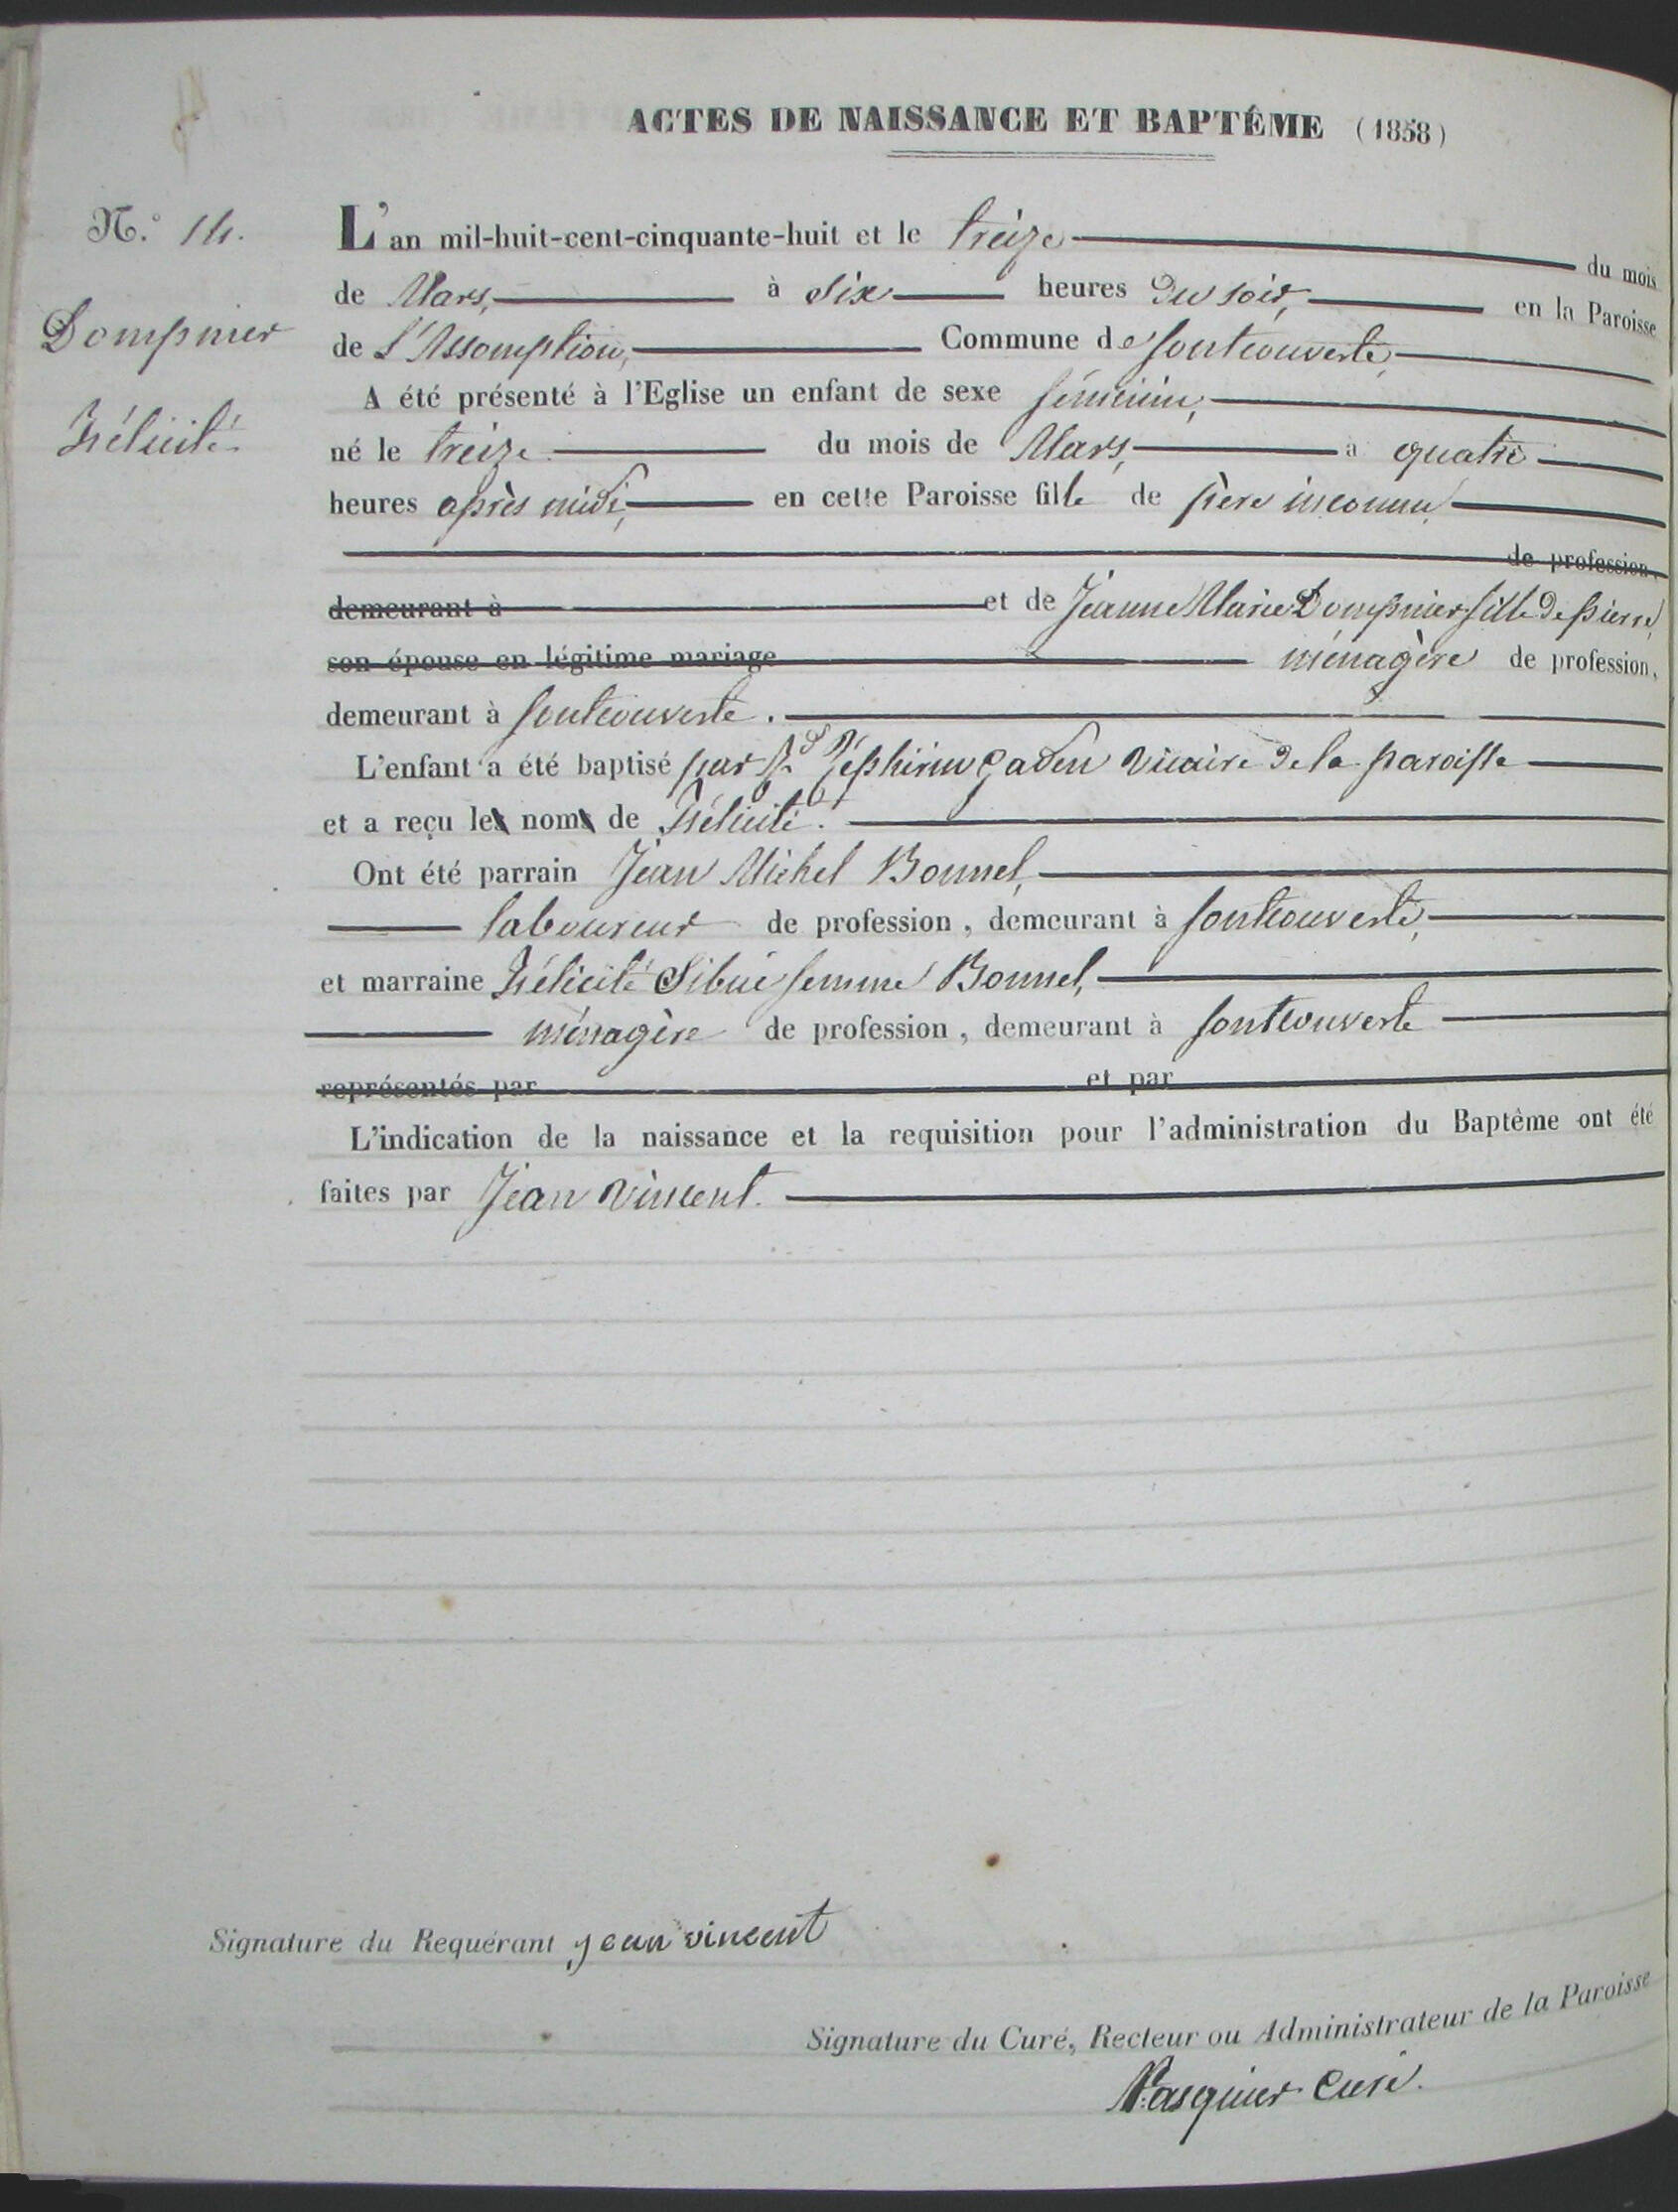 ACTES DE NAISSANCE ET BAPTÊME (1858)
N.° 14.
Dompnier
Félicité
L'an mil-huit-cent-cinquante-huit et le treize du mois
de Mars, à Six heures du soir, en la Paroisse
de L'Assomption, Commune de fontcouverte,
A été présenté à l'Eglise un enfant de sexe féminin,
né le treize du mois de Mars, à quatre
heures après midi, en cette Paroisse fille de père inconnu
de profession,
demeurant à et de Jeanne Marie Dompnier fille de pierre,
son épouse en légitime mariage ménagère de profession,
demeurant à fontcouverte.
L'enfant a été baptisé par Rd Zéphirin Gaden vicaire de la paroisse
et a reçu les noms de Félicité.
Ont été parrain Jean Michel Bonnel,
laboureur de profession, demeurant à fontcouverte,
et marraine Félicité Sibué femme Bonnel,
ménagère de profession, demeurant à fontcouverte
représentés par et par
L'indication de la naissance et la requisition pour l'administration du Baptême ont été
faites par Jean Vincent.
Signature du Requérant jean vincent
Signature du Curé, Recteur ou Administrateur de la Paroisse
Pasquier Curé.